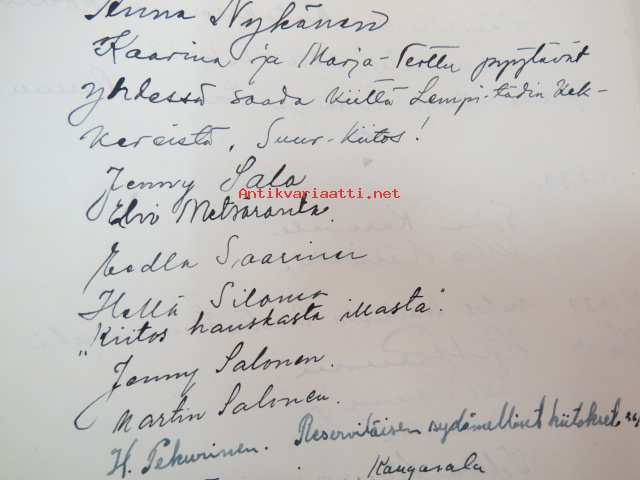 Anna Nykänen
Kaarina ja Marja-Terttu pyytävät
yhdessä saada kiittä Lempi-tädin kek-
kereistä, Suur-kiitos!
Jenny Salo
Antikvariaatti.net
Elvi Metsäranta.
Eedla Saarinen
Hellä Siloma
"Kiitos hauskasta illasta".
Jenny Salonen.
Martin Salonen.
H. Pekurinen. Reserviläisen sydämelliset kiitokset
Kangasala